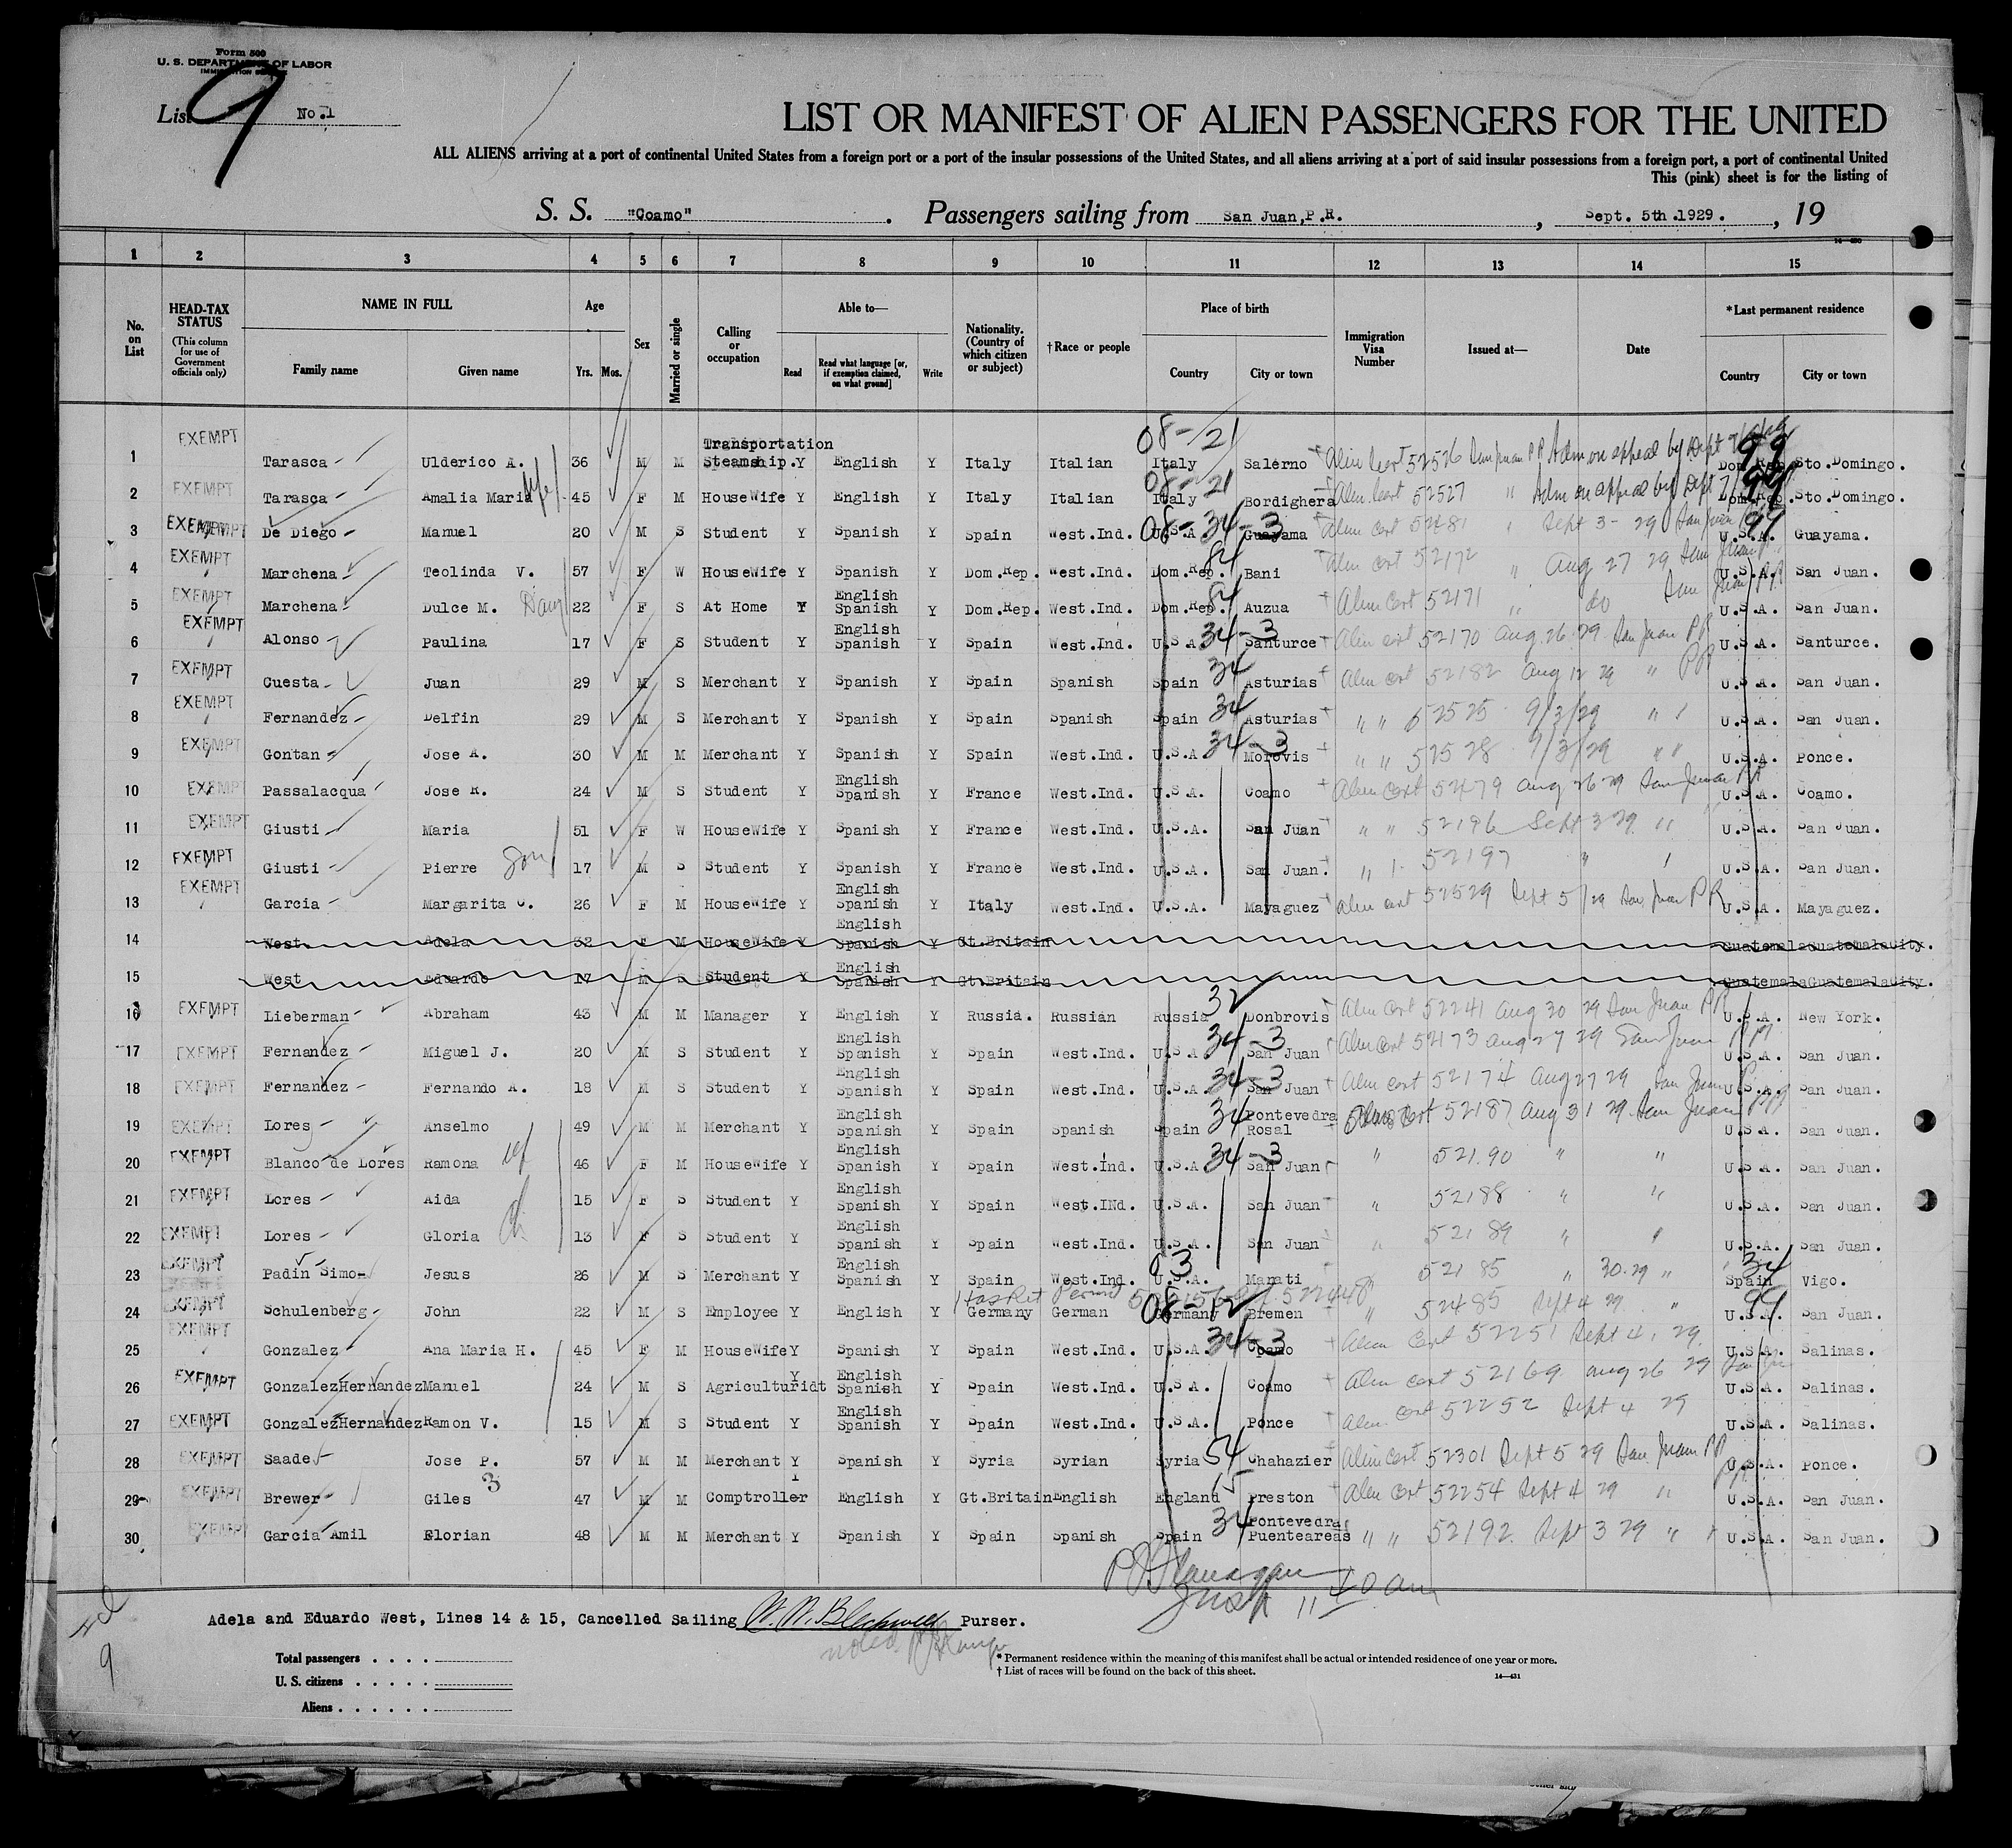 Form 500
U. S. DEPARTMENT OF LABOR
IMMIGRATION SERVICE
List 9 No.1
LIST OR MANIFEST OF ALIEN PASSENGERS FOR THE UNITED
ALL ALIENS arriving at a port of continental United States from a foreign port or a port of the insular possessions of the United States, and all aliens arriving at a port of said insular possessions from a foreign port, a port of continental United
This (pink) sheet is for the listing of
S. S. "Coamo". Passengers sailing from San Juan,P.R., Sept. 5th.1929., 19
1 2 3 4 5 6 7 8 9 10 11 12 13 14 15
No. on List
HEAD-TAX STATUS (This column for use of Government officials only)
NAME IN FULL Family name Given name
Age Yrs. Mos.
Sex
Married or single
Calling or occupation
Able to— Read Read what language [or, if exemption claimed, on what ground] Write
Nationality. (Country of which citizen or subject)
†Race or people
Place of birth Country City or town
Immigration Visa Number
Issued at—
Date
*Last permanent residence Country City or town
1 EXEMPT Tarasca Ulderico A. 36 M M Transportation Steamship. Y English Y Italy Italian 08-21 Italy Salerno Alien Cert 52526 San Juan PR Adm on appeal by Dept 99 Dom.Rep. Sto.Domingo.
2 EXEMPT Tarasca Amalia Maria wife 45 F M HouseWife Y English Y Italy Italian 08-21 Italy Bordighera Alien Cert 52527 " Adm on appeal by Dept 99 Dom.Rep. Sto.Domingo.
3 EXEMPT De Diego Manuel 20 M S Student Y Spanish Y Spain West.Ind. 08-34-3 U.S.A. Guayama Alien Cert 52481 " Sept 3-29 San Juan 99 U.S.A. Guayama.
4 EXEMPT Marchena Teolinda V. 57 F W HouseWife Y Spanish Y Dom.Rep. West.Ind. Dom.Rep. Bani Alien Cert 52172 " Aug 27 29 San Juan P.R. U.S.A. San Juan.
5 EXEMPT Marchena Dulce M. Daug 22 F S At Home Y English Spanish Y Dom.Rep. West.Ind. Dom.Rep. Auzua Alien Cert 52171 " do San Juan PR U.S.A. San Juan.
6 EXEMPT Alonso Paulina 17 F S Student Y English Spanish Y Spain West.Ind. U.S.A. 34-3 Santurce Alien cert 52170 Aug. 26. 29. San Juan PR U.S.A. Santurce.
7 EXEMPT Cuesta Juan 29 M S Merchant Y Spanish Y Spain Spanish Spain 34 Asturias Alien cert 52182 Aug 12 29 " PR U.S.A. San Juan.
8 EXEMPT Fernandez Delfin 29 M S Merchant Y Spanish Y Spain Spanish Spain 34 Asturias " " 52525 9/3/29 " " U.S.A. San Juan.
9 EXEMPT Gontan Jose A. 30 M M Merchant Y Spanish Y Spain West.Ind. U.S.A. 34-3 Morovis " " 52528 9/3/29 " " U.S.A. Ponce.
10 EXEMPT Passalacqua Jose R. 24 M S Student Y English Spanish Y France West.Ind. U.S.A. Coamo Alien Cert 52479 Aug 26 29 San Juan PR U.S.A. Coamo.
11 EXEMPT Giusti Maria 51 F W HouseWife Y Spanish Y France West.Ind. U.S.A. San Juan " " 52196 Sept 3 29 " U.S.A. San Juan.
12 EXEMPT Giusti Pierre son 17 M S Student Y Spanish Y France West.Ind. U.S.A. San Juan. " " 52197 " U.S.A. San Juan.
13 EXEMPT Garcia Margarita C. 26 F M HouseWife Y English Spanish Y Italy West.Ind. U.S.A. Mayaguez Alien cert 52529 Sept 5/29 San Juan PR U.S.A. Mayaguez.
14 West Adela 32 F M HouseWife Y English Spanish Y Gt.Britain Guatemala GuatemalaCity.
15 West Eduardo 17 M S Student Y English Spanish Y Gt.Britain Guatemala GuatemalaCity.
16 EXEMPT Lieberman Abraham 43 M M Manager Y English Y Russia. Russian Russia 32 Donbrovis Alien Cert 52241 Aug 30 29 San Juan PR U.S.A. New York.
17 EXEMPT Fernandez Miguel J. 20 M S Student Y English Spanish Y Spain West.Ind. U.S.A. 34-3 San Juan Alien Cert 52173 Aug 27 29 San Juan PR U.S.A. San Juan.
18 EXEMPT Fernandez Fernando A. 18 M S Student Y English Spanish Y Spain West.Ind. U.S.A. 34-3 San Juan Alien cert 52174 Aug 27 29 San Juan P.R. U.S.A. San Juan.
19 EXEMPT Lores Anselmo 49 M M Merchant Y English Spanish Y Spain Spanish Spain 34 Pontevedra Rosal Alien Cert 52187 Aug 31 29 San Juan PR U.S.A. San Juan.
20 EXEMPT Blanco de Lores Ramona wf 46 F M HouseWife Y English Spanish Y Spain West.Ind. U.S.A 34-3 San Juan " 52190 " " U.S.A. San Juan.
21 EXEMPT Lores Aida 15 F S Student Y English Spanish Y Spain West.INd. U.S.A. San Juan " 52188 " " U.S.A. San Juan.
22 EXEMPT Lores Gloria ch 13 F S Student Y English Spanish Y Spain West.Ind. U.S.A. San Juan " 52189 " " U.S.A. San Juan.
23 EXEMPT Padin Simo Jesus 26 M S Merchant Y English Spanish Y Spain West.Ind. U.S.A. Manati 52185 " 30.29 " 34 Spain Vigo.
24 EXEMPT Schulenberg John 22 M S Employee Y English Y Germany German 08-12 Germany Bremen " 52485 Sept 4 29 " 99 U.S.A. San Juan.
25 EXEMPT Gonzalez Ana Maria H. 45 F M HouseWife Y Spanish Y Spain West.Ind. U.S.A. 34-3 Coamo Alien Cert 52251 Sept 4, 29. U.S.A. Salinas.
26 EXEMPT GonzalezHernandez Manuel 24 M S Agriculturidt Y English Spanish Y Spain West.Ind. U.S.A. Coamo Alien cert 52169 Aug 26 29 U.S.A. Salinas.
27 EXEMPT GonzalezHernandez Ramon V. 15 M S Student Y English Spanish Y Spain West.Ind. U.S.A. Ponce Alien Cert 52252 Sept 4 29 U.S.A. Salinas.
28 EXEMPT Saade Jose P. 57 M M Merchant Y Spanish Y Syria Syrian Syria 54 Chahazier Alien Cert 52301 Sept 5 29 San Juan PR U.S.A. Ponce.
29 EXEMPT Brewer Giles 3 47 M M Comptroller Y English Y Gt.Britain English England 15 Preston Alien Cert 52254 Sept 4 29 " U.S.A. San Juan.
30 EXEMPT Garcia Amil Florian 48 M M Merchant Y Spanish Y Spain Spanish Spain 34 Pontevedra Puenteareas " " 52192. Sept 3 29 " " U.S.A. San Juan.
P Flanagan
Insp 11 40 am
Adela and Eduardo West, Lines 14 & 15, Cancelled Sailing W. W. Blackwell Purser.
noted
9
Total passengers . . . .
U. S. citizens . . . . .
Aliens . . . . . .
* Permanent residence within the meaning of this manifest shall be actual or intended residence of one year or more.
† List of races will be found on the back of this sheet.
14—431